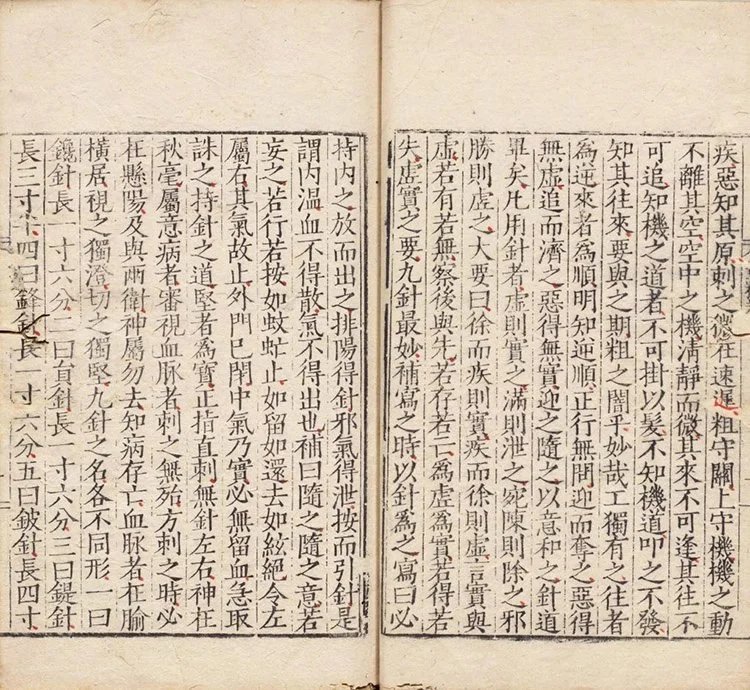 疾惡知其原刺之微在速遲粗守關上守機機之動
不離其空空中之機清靜而微其來不可逢其往不
可追知機之道者不可掛以髮不知機道叩之不發
知其往來要與之期粗之闇乎妙哉工獨有之往者
為逆來者為順明知逆順正行無問迎而奪之惡得
無虛追而濟之惡得無實迎之隨之以意和之針道
畢矣凡用針者虛則實之滿則泄之宛陳則除之邪
勝則虛之大要曰徐而疾則實疾而徐則虛言實與
虛若有若無察後與先若存若亡為虛為實若得若
失虛實之要九針最妙補寫之時以針為之寫曰必
持內之放而出之排陽得針邪氣得泄按而引針是
謂內溫血不得散氣不得出也補曰隨之隨之意若
妄之若行若按如蚊虻止如留如還去如絃絕令左
屬右其氣故止外門已閉中氣乃實必無留血急取
誅之持針之道堅者為寶正指直刺無針左右神在
秋毫屬意病者審視血脉者刺之無殆方刺之時必
在懸陽及與兩衛神屬勿去知病存亡血脉者在腧
橫居視之獨澄切之獨堅九針之名各不同形一曰
鑱針長一寸六分二曰員針長一寸六分三曰鍉針
長三寸半四曰鋒針長一寸六分五曰鈹針長四寸